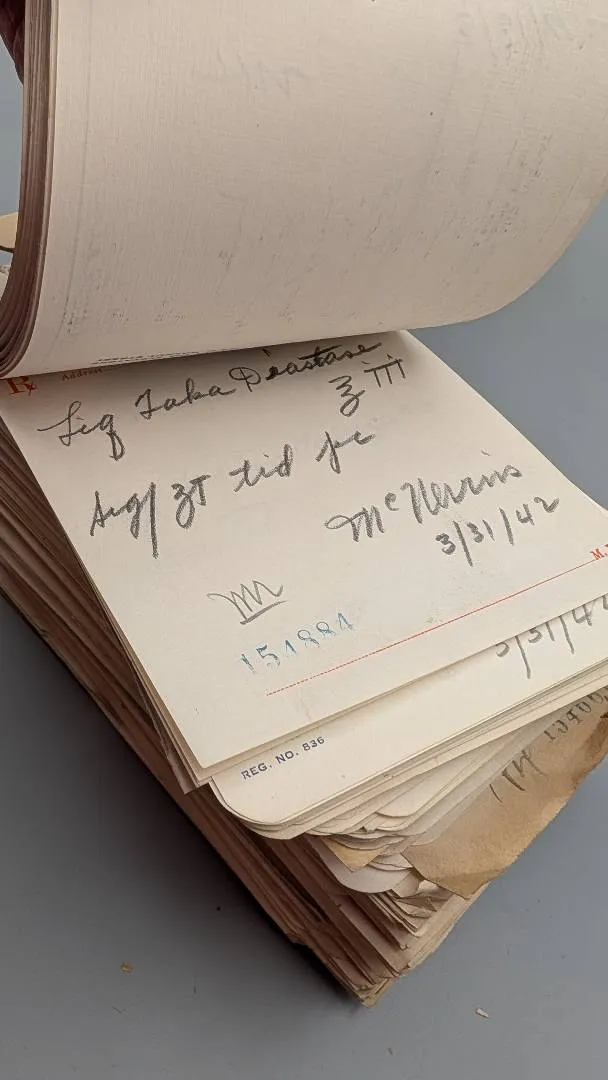 Rx Address
Liq Taka Diastase
℥ iii
Sig/ ʒT tid pc
McNerris
3/31/42
M.
151884
3/31/42
REG. NO. 836